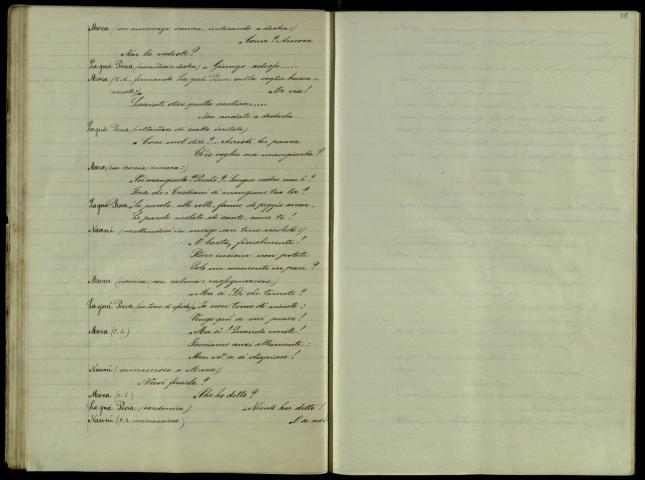 Mara (con amarezza ironica, entrando a destra:)
Come? Ancora
Non la vedeste?
La gnà Pina (movendosi a destra) » Giungo adesso....
Mara (c. s. fermando La gnà Pina sulla soglia
» Or via!
Lasciate stare quella creatura.....
Non andate a destarla
La gnà Pina (voltandosi di scatto irritata)
» Cosa vuol dire?... Avresti tu paura
Ch'io voglia ora mangiarla?
Mara (con ironia amara:)
» Voi mangiarla? Perché? Sangue vostro non è?
Forse che i Cristiani si mangiano tra lor?
La gnà Pina » Le parole alle volte, fanno di peggio ancor.
Le parole melate di sante, come te!
Nanni (mettendosi in mezzo con tono
» O basta, finalmente!
Stare insieme non potete
Solo un momento in pace?
Mara (ironica, con calma e rassegnazione)
» Ma sì! Di che temete?
La gnà Pina (in tono di sfida) » Io non temo di niente:
Vengo qui se mi piace!
Mara (c. s.) » Ma sì! Quando vorrete!
Facciamo anzi altrimenti:
Men vo' se vi dispiace!
Nanni (minaccioso a Mara)
» Vuoi finirla?
Mara (c. s.) » Che ho detto?
La gnà Pina (sardonica) » Niente hai detto!
Nanni (c. s. minaccioso) » O se no!